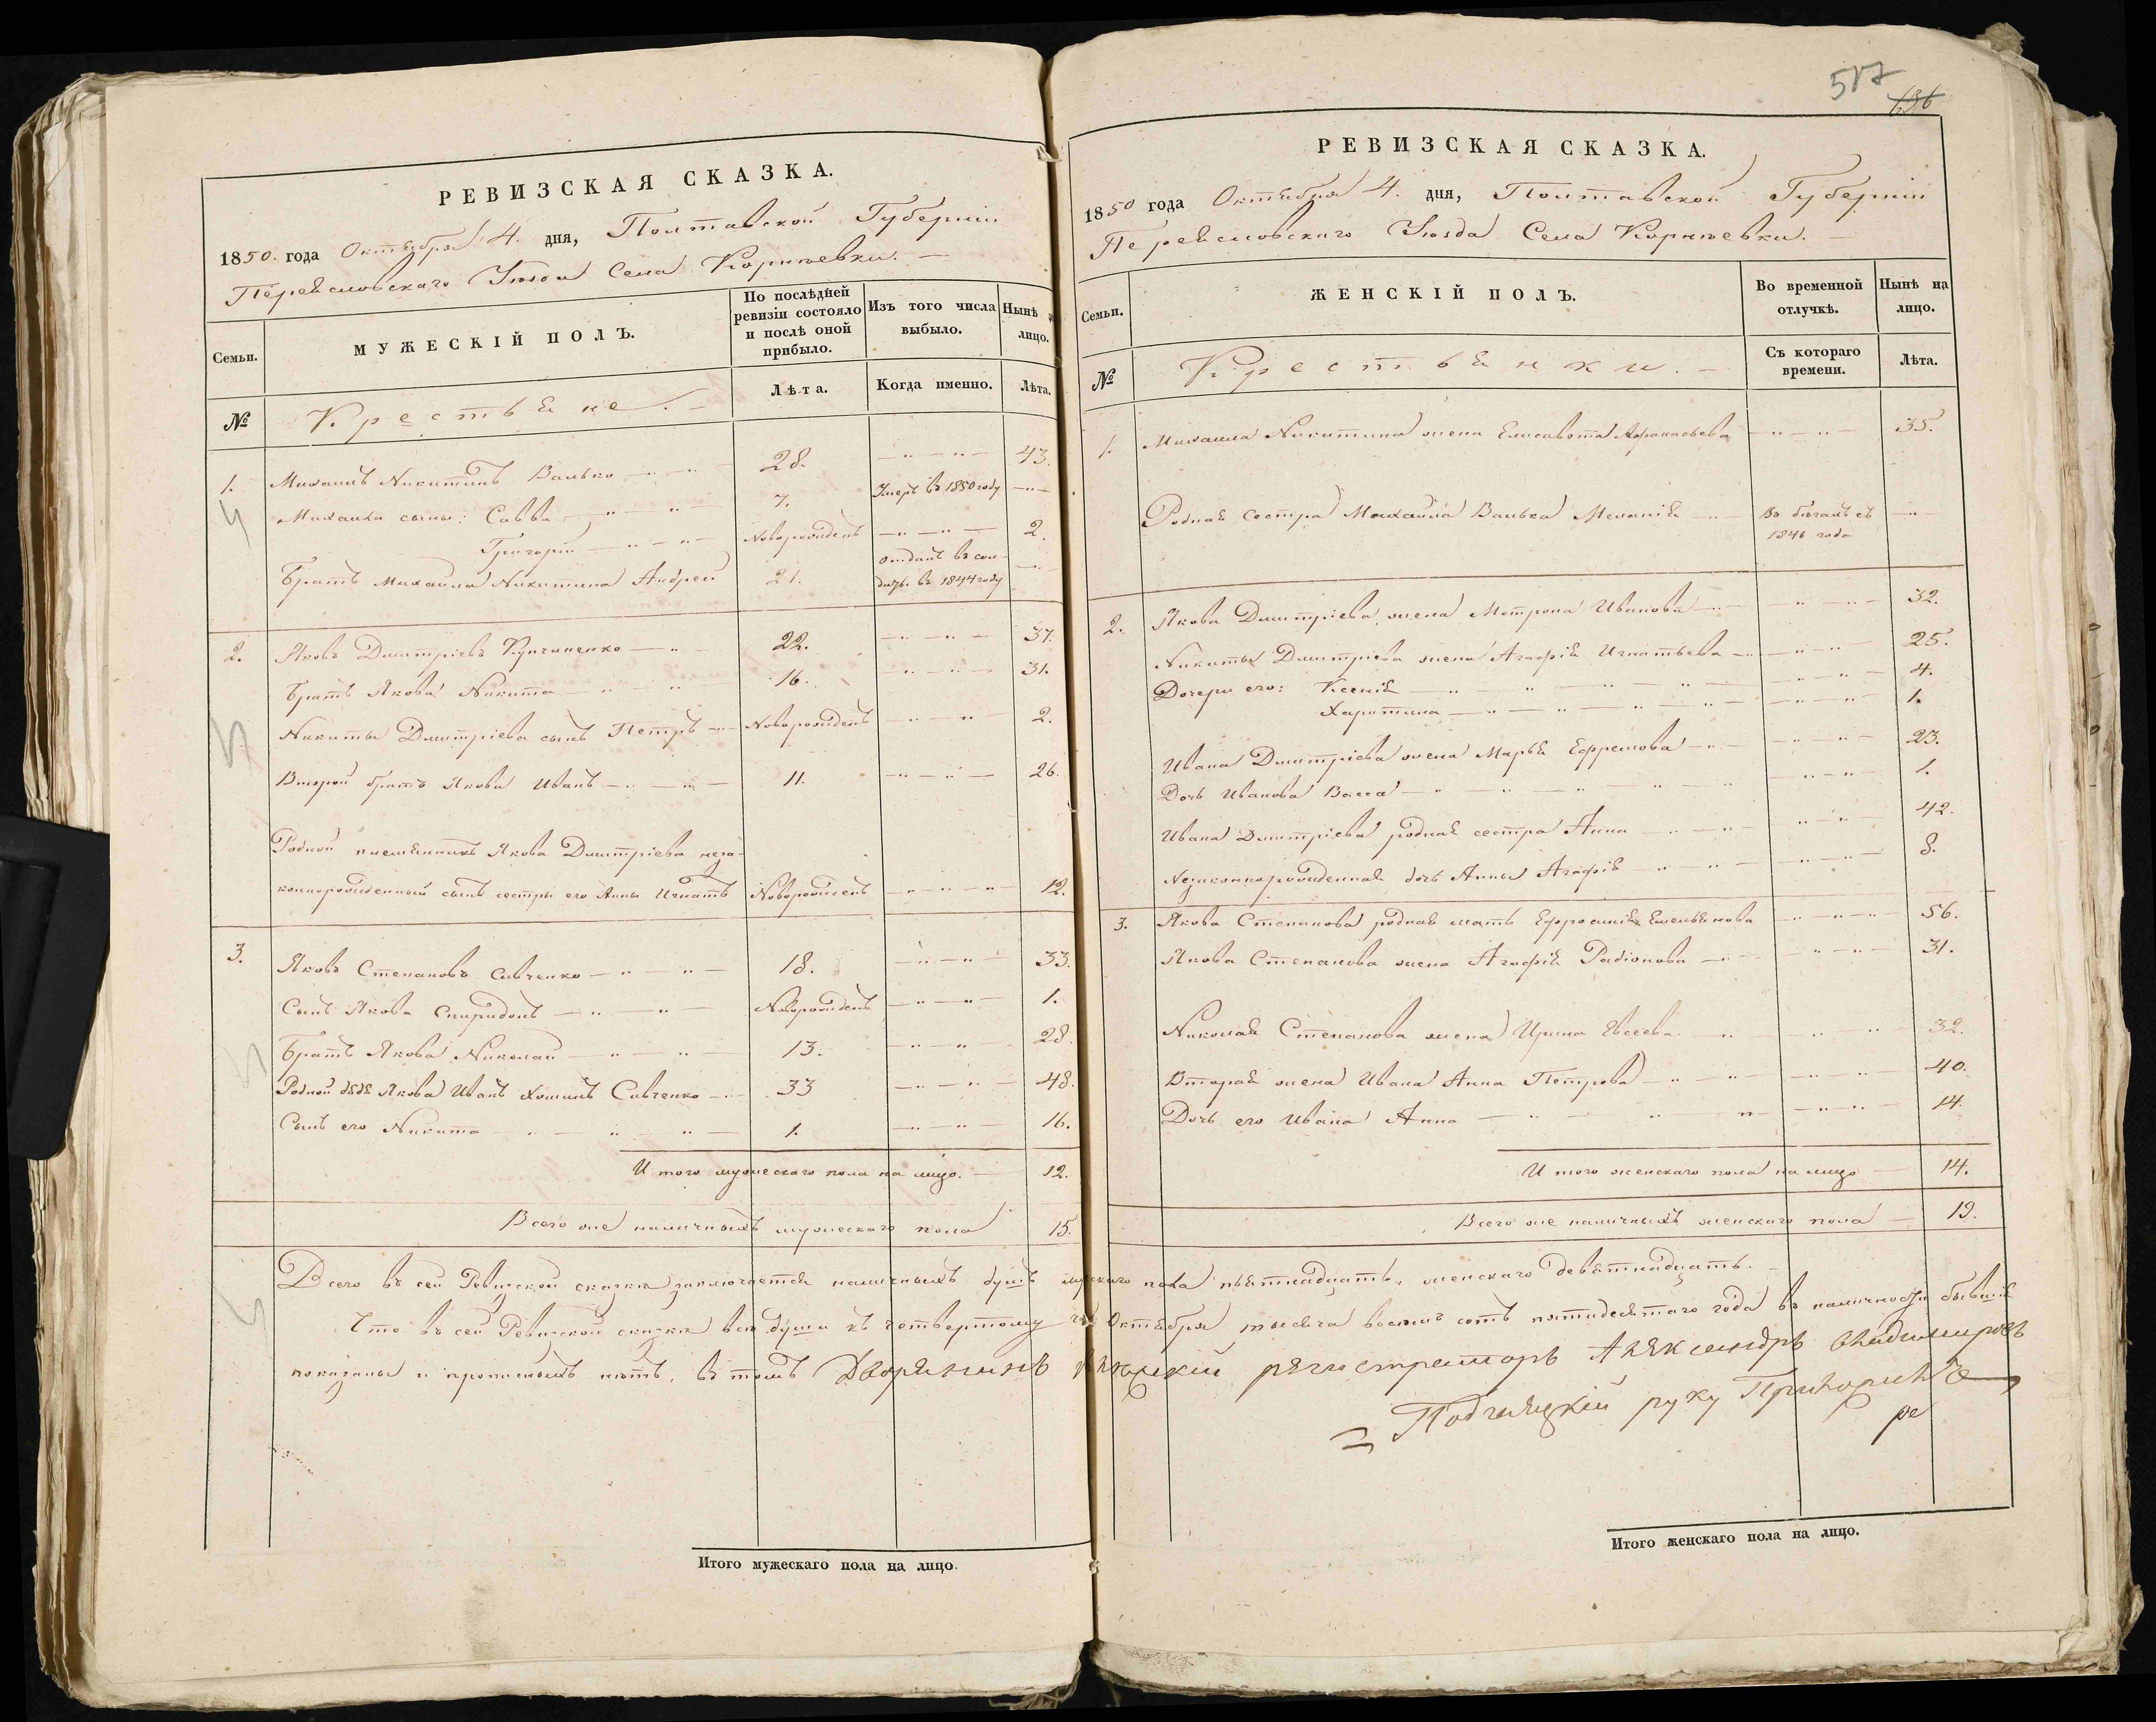 517
626
РЕВИЗСКАЯ СКАЗКА.
1850. года Октября 4. дня, Полтавской Губерніи
Переяславскаго Уѣзда Села Корнѣевки. —
Семьи.
МУЖЕСКІЙ ПОЛЪ.
По послѣдней ревизіи состояло и послѣ оной прибыло.
Изъ того числа выбыло.
Нынѣ на лицо.
№
Крестьяне. —
Лѣта.
Когда именно.
Лѣта.
1. Михаилъ Никитинъ Валько — 28. — 43.
Михаила сыны: Савва — 7. Умеръ въ 1850 году —
Григорій — Новорожденъ — 2.
Братъ Михаила Никитина Андрей 21. отданъ въ сол-
даты въ 1844 году —
2. Яковъ Дмитріевъ Купчиненко — 22. — 37.
Братъ Якова Никита — 16. — 31.
Никиты Дмитріева сынъ Петръ — Новорожденъ — 2.
Второй братъ Якова Иванъ — 11. — 26.
Родной племянникъ Якова Дмитріева неза-
коннорожденный сынъ сестры его Анны Игнатъ Новорожденъ — 12.
3. Яковъ Степановъ Савченко — 18. — 33.
Сынъ Якова Спиридонъ — Новорожденъ — 1.
Братъ Якова Николай — 13. — 28.
Родной дядя Якова Иванъ Хоминъ Савченко — 33 — 48.
Сынъ его Никита — 1. — 16.
Итого мужескаго пола на лицо. — 12.
Всего же наличныхъ мужескаго пола 15.
РЕВИЗСКАЯ СКАЗКА.
1850 года Октября 4. дня, Полтавской Губерніи
Переяславскаго Уѣзда Села Корнѣевки. —
Семьи.
ЖЕНСКІЙ ПОЛЪ.
Во временной отлучкѣ.
Нынѣ на лицо.
№
Крестьянки. —
Съ котораго времени.
Лѣта.
1. Михаила Никитина жена Елисавета Афанасьева — 35.
Родная сестра Михаила Валька Меланія — Въ бѣгахъ съ —
1846 года
2. Якова Дмитріева жена Мотрона Иванова — 32.
Никиты Дмитріева жена Агафія Игнатьева — 25.
Дочери его: Ксенія — 4.
Харитина — 1.
Ивана Дмитріева жена Марья Ефремова — 23.
Дочь Иванова Васса — 1.
Ивана Дмитріева родная сестра Анна — 42.
Незаконнорожденная дочь Анны Агафія — 8.
3. Якова Степанова родная мать Ефросинія Емельянова — 56.
Якова Степанова жена Агафія Радіонова — 31.
Николая Степанова жена Ирина Евсеева — 32.
Вторая жена Ивана Анна Петрова — 40.
Дочь его Ивана Анна — 14.
Итого женскаго пола на лицо — 14.
Всего же наличныхъ женскаго пола — 19.
Всего въ сей Ревизской сказкѣ заключается наличныхъ душъ мужскаго пола пятнадцать, женскаго девятнадцать. —
Что въ сей Ревизской сказкѣ всѣ души къ четвертому Октября тысяча восемь сотъ пятидесятаго года въ наличности бывшія
показаны и прописныхъ нѣтъ, въ томъ Дворянинъ регистраторъ Александръ Владимировъ
Подгаецкій руку Приложилъ
Итого мужескаго пола на лицо.
Итого женскаго пола на лицо.